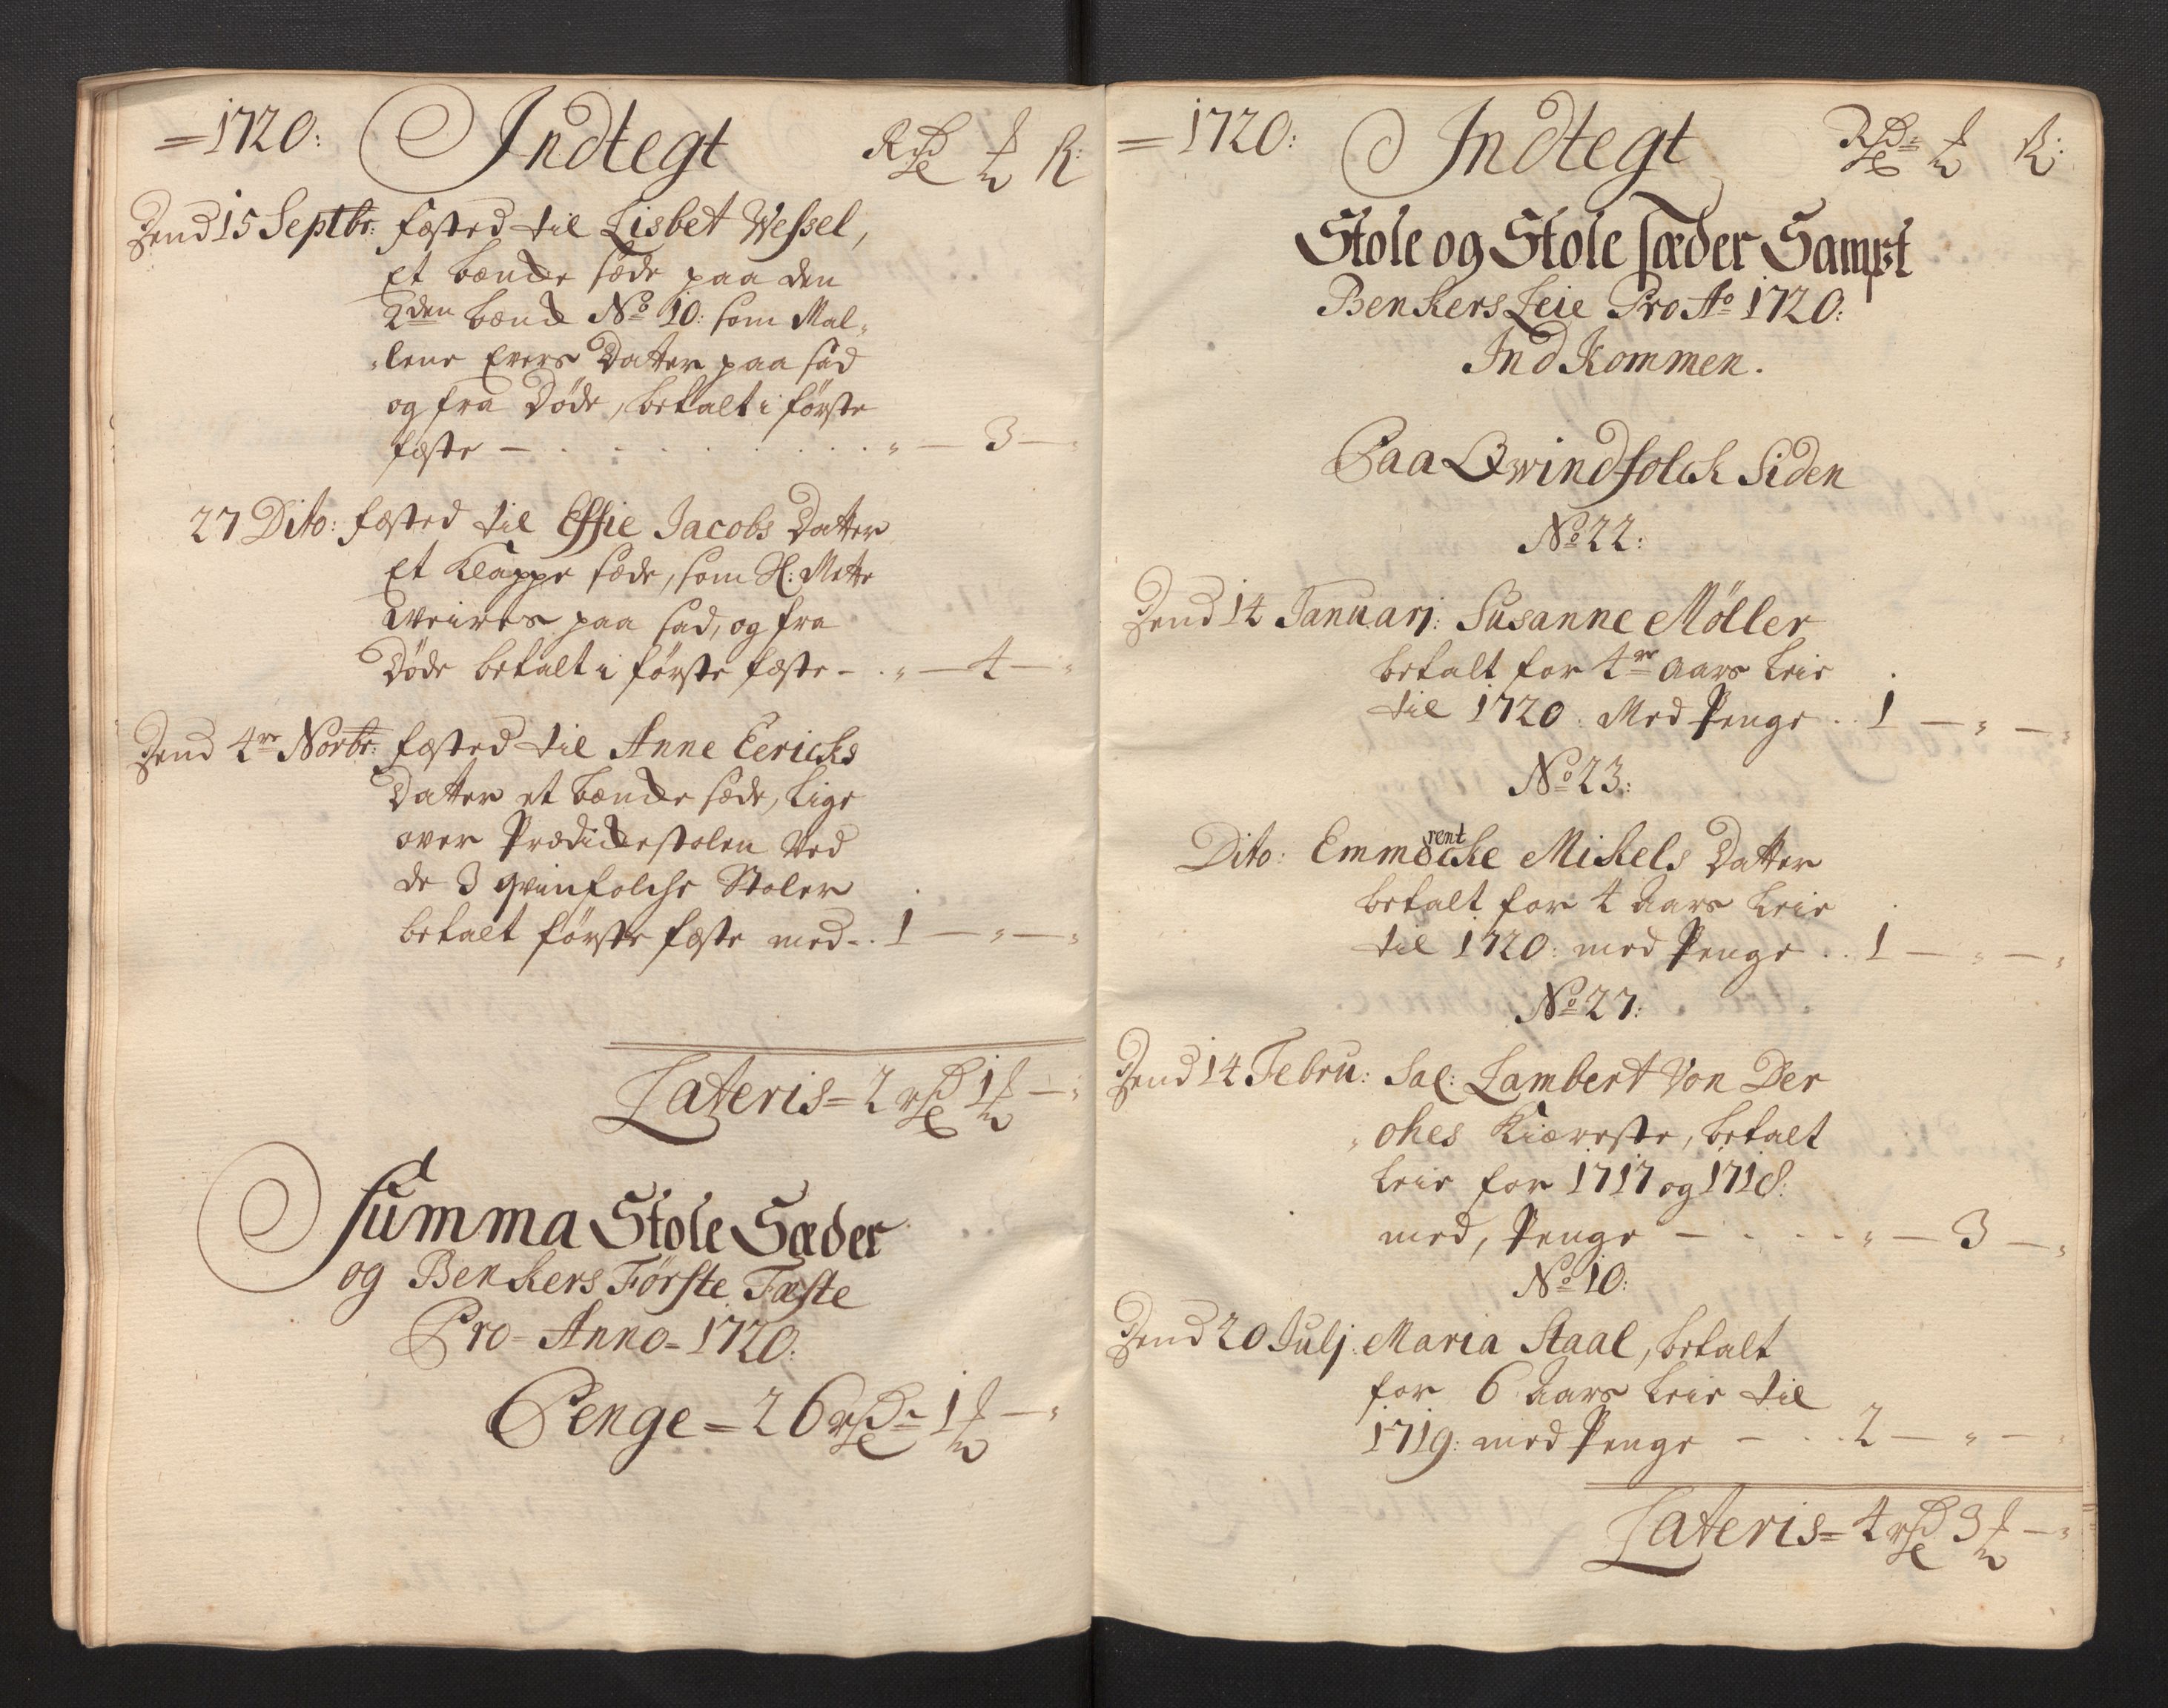 =1720: Indtegt Rdr ℔ ß:
Dend 15 Septbr: fæsted til Lisbet Wessel,
Et bæncke sæde paa den
2den bænck No 10: som Mal„
„lene Evers Datter paa sad
og fra Döde, betalt i förste
fæste — . . . . . . . „ — 3 — „
27 Dito: fæsted til Effie Jacobs Datter
Et Klappe sæde, som Sl: Mette
Weires paa sad, og fra
Döde betalt i förste fæste – . „ — 4 — „
Dend 4re Novbr: fæsted til Anne Eericks
Datter et bæncke sæde, lige
over Prædickestolen ved
de 3 qvinfolche Stoler
betalt förste fæste med – . 1 — „ — „
Lateris = 2 rdr 1 ℔ — „
Summa Stole Sæder
og Benkers Förste Fæste
Pro – Anno – 1720:
Penge = 26 rdr – 1 ℔ — „
=1720: Indtegt Rdr: ℔ ß:
Stole og Stole sæder Sampt
Benkers Leie Pro Ao 1720:
Ind Kommen.
Paa Qwindfolck Siden
No 22:
Dend 14 Januarj: Susanne Möller
betalt for 4re aars leie
til 1720: Med Penge . . 1 — „ — „
No 23:
Dito: Emmerentcke Mikels Datter
betalt for 4 aars leie
til 1720: med Penge . . 1 — „ — „
No 27:
Dend 14 Febru: Sal: Lambert Von Der
„ohes Kiæreste, betalt
leie for 1717 og 1718:
med, Penge — . . . . „ — 3 — „
No 10:
Dend 20 Julj: Maria Staal, betalt
for 6 aars leie til
1719: med Penge — . . 2 — „ — „
Lateris = 4 rdr 3 ℔ — „